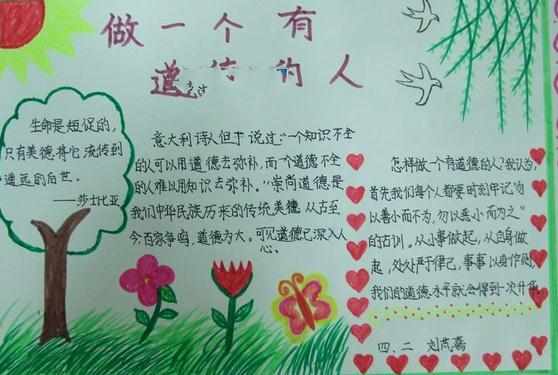 做一个有
道德的人
生命是短促的，
只有美德将它流传到
遥远的后世。
——莎士比亚
意大利诗人但丁说过："一个知识不全
的人可以用道德去弥补，而一个道德不全
的人难以用知识去弥补。"崇尚道德是
我们中华民族历来的传统美德。从古至
今百家争鸣，道德为大。可见道德已深入人
心。
怎样做一个有道德的人？我认为，
首先我们每个人都要时刻牢记"勿
以善小而不为，勿以恶小而为之"
的古训，从小事做起，从自身做
起，处处严于律己，事事以身作则，
我们的道德水平就会得到一次升华。
四、二 刘芮嘉